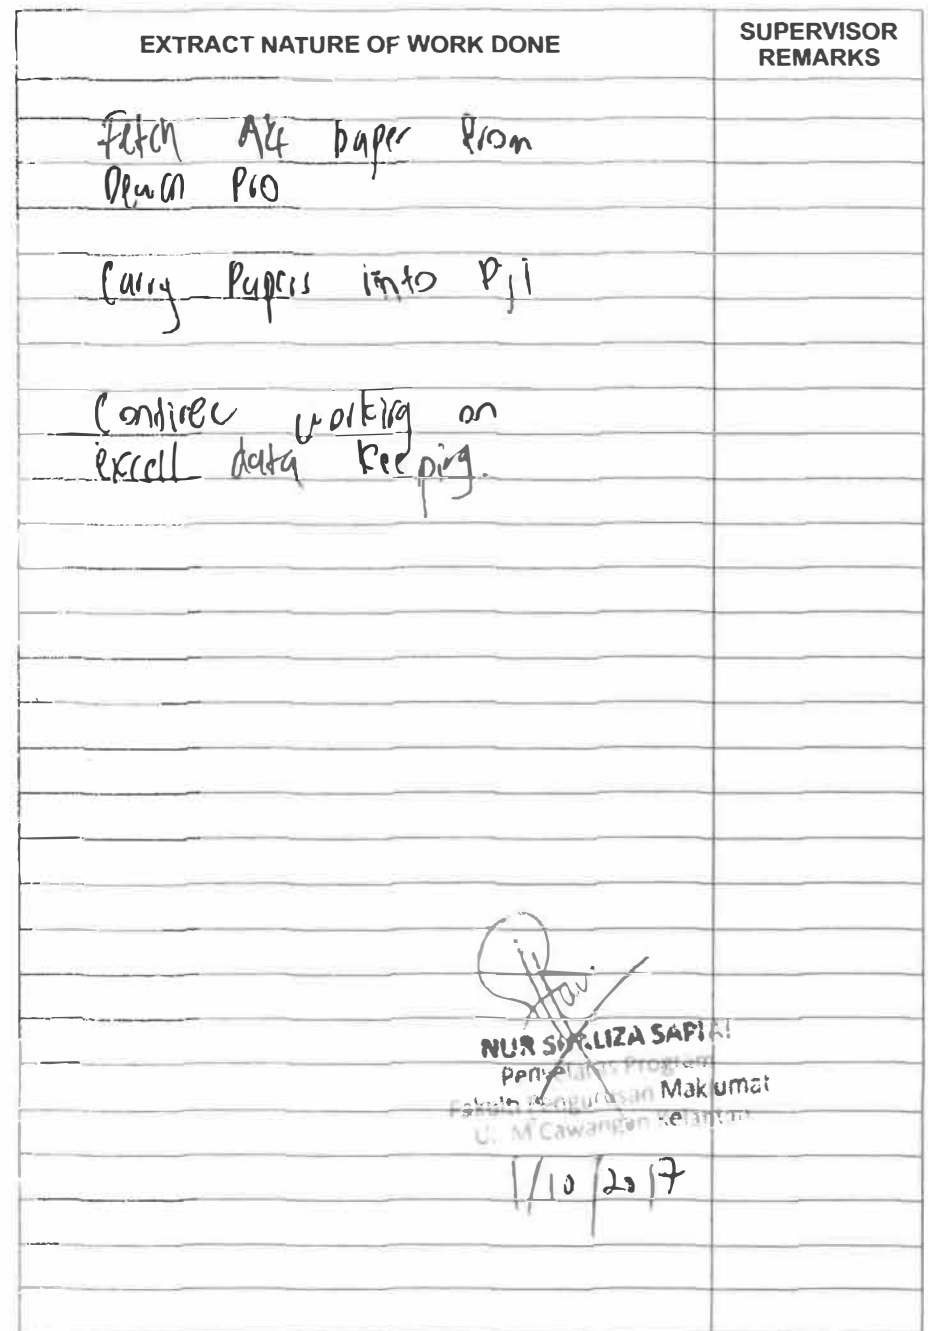 EXTRACT NATURE OF WORK DONE
SUPERVISOR
REMARKS
Fetch A4 paper from
Carry Papers into PJI
working on
excell data keeping.
NUR LIZA SAPIAI
Program
Fakulti Pengurusan Maklumat
Cawangan Kelantan
1/10/2017